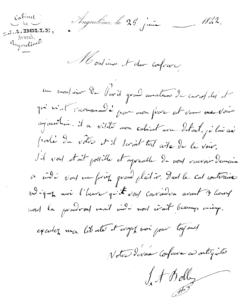 Cabinet
Angoulême, le 25 juin 1882
Monsieur et cher confrère
un monsieur de Paris grand amateur de curiosités et
qui m'est recommandé par mon frère est venu me voir
aujourd'hui il a visité mon cabinet en détail, je lui ai
parlé du vôtre et il serait très aise de le voir.
S'il vous était possible et agréable de nous recevoir demain
à midi vous me feriez grand plaisir. Dans le cas contraire
indiquez moi l'heure qu'il vous conviendra avant 4 heures
nous la prendrons mais midi nous irait beaucoup mieux,
et croyez moi pour toujours
Votre dévoué confrère en antiquités